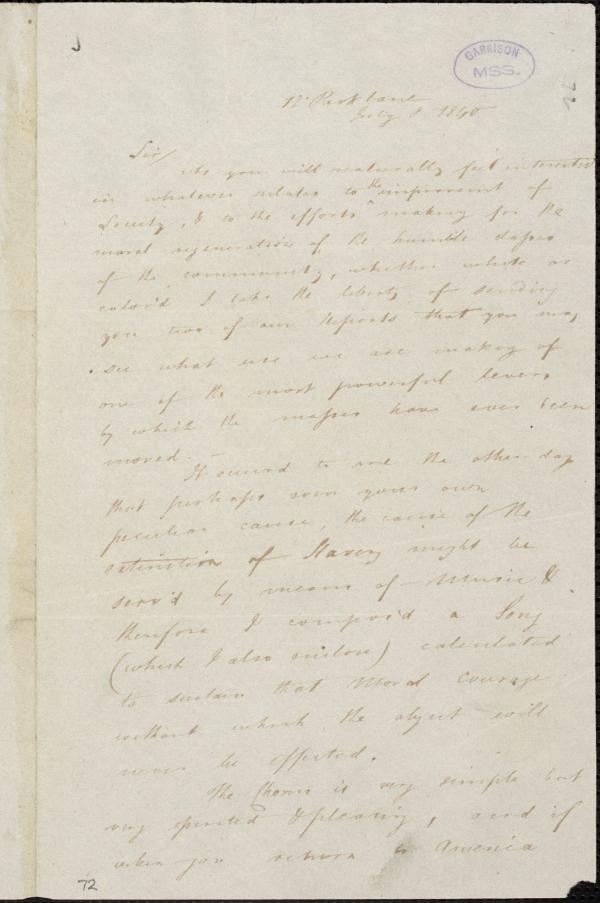 GARRISON
MSS.
12 Park Lane
July 8 1840
Sir/
As you will naturally feel interested
in whatever relates to the improvement of
Society, & to the efforts making for the
moral regeneration of the humble classes
of the community, whether white or
color'd I take the liberty of sending
you two of our Reports that you may
see what use we are making of
one of the most powerful levers
by which the masses have ever been
moved. —
It occurd to me the other day
that perhaps even your own
peculiar cause, the cause of the
extinction of Slavery might be
serv'd by means of Music &
therefore I compos'd a Song
(which I also enclose) calculated
to sustain that Moral Courage
without which the object will
never be effected.
The Chorus is very simple but
very spirited & pleasing, and if
when you return to America
72